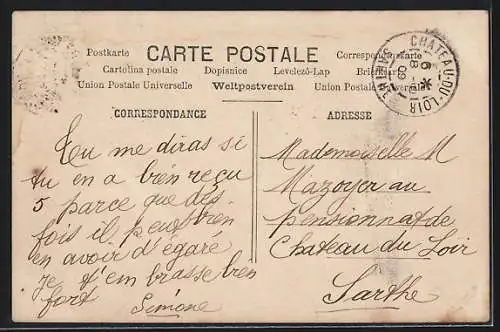 CARTE POSTALE
Postkarte
Correspondenzkarte
Cartolina postale Dopisnice Levelező-Lap
Union Postale Universelle Weltpostverein Union Postale Universelle
CHATEAU-DU-LOIR
CORRESPONDANCE
ADRESSE
Tu me diras si
tu en a bien reçu
5 parce que des
fois il peut bien
en avoir d'égaré
Je t'embrasse bien
fort
Simone
Mademoiselle M
Mazoyer au
pensionnat de
Chateau du Loir
Sarthe